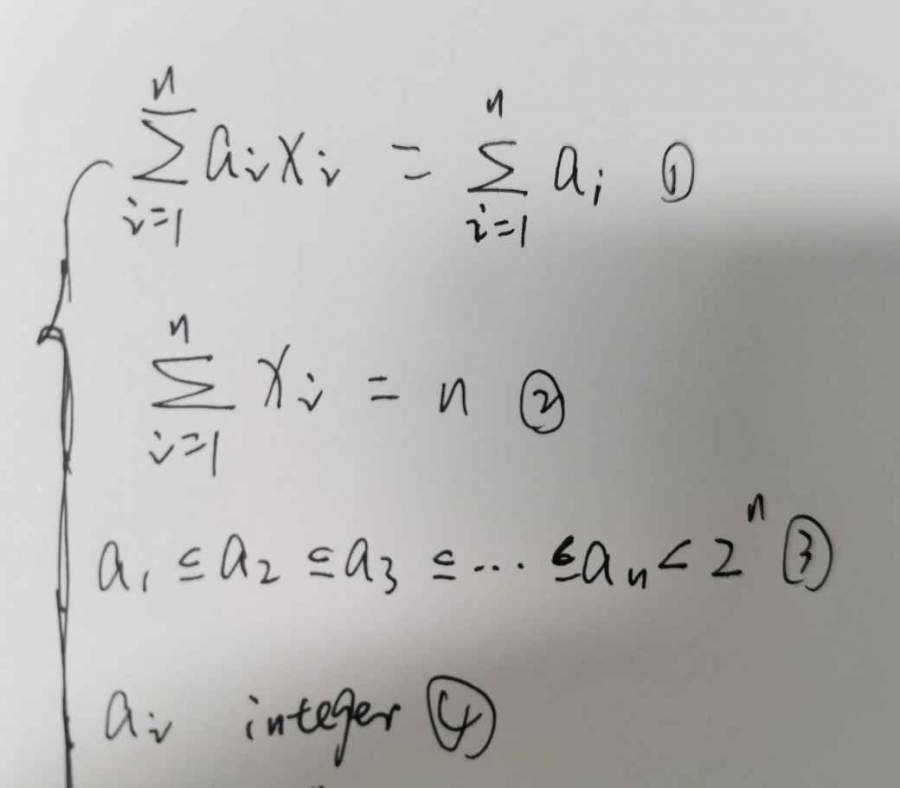 \sum_{i=1}^{n} a_i x_i = \sum_{i=1}^{n} a_i ①
\sum_{i=1}^{n} x_i = n ②
a_1 ≤ a_2 ≤ a_3 ≤ ... ≤ a_n < 2^n ③
a_i integer ④